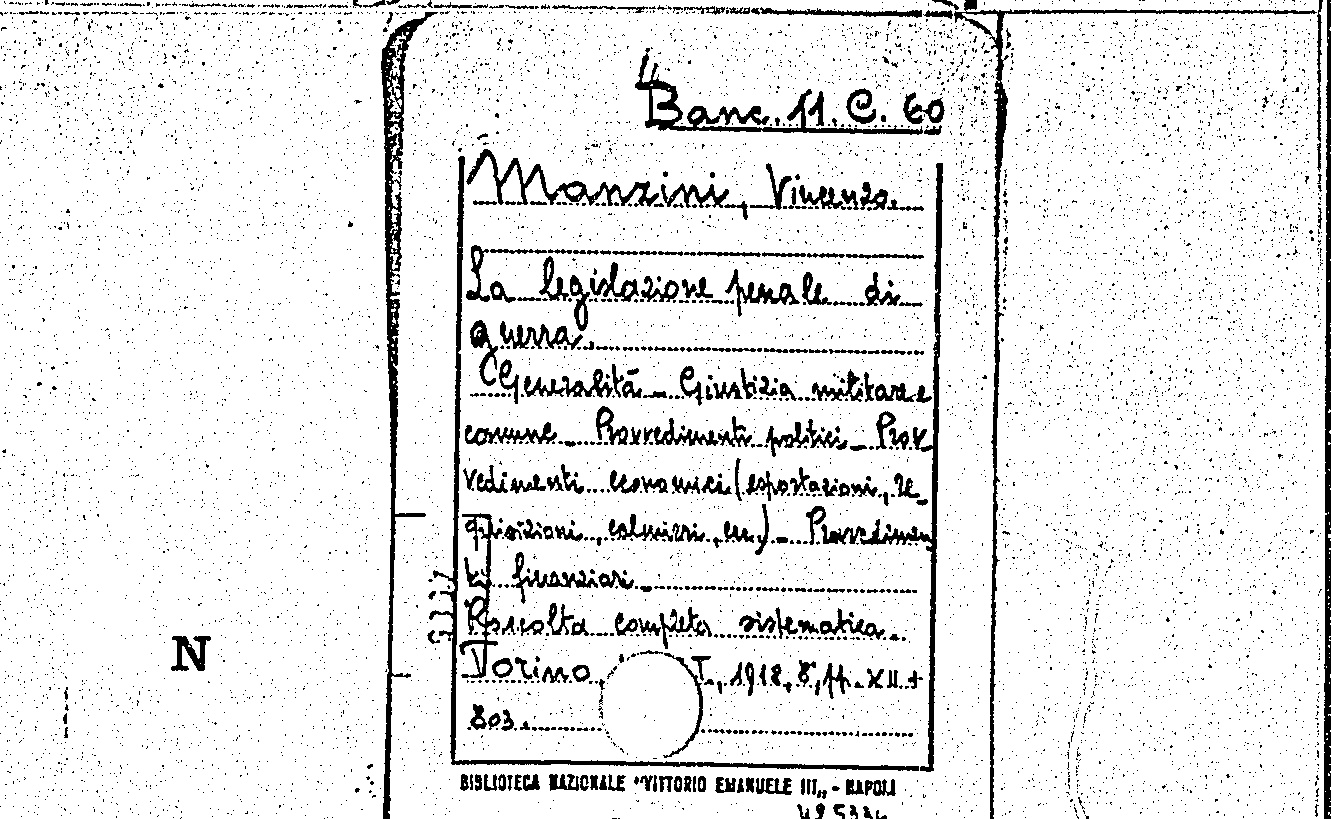 Banc. 11. C. 60
Manzini, Vincenzo.
La legislazione penale di
guerra.
(Generalità - Giustizia militare e
comune - Provvedimenti politici - Prov-
vedimenti economici (esportazioni, re-
quisizioni, calmieri, ecc.) - Provvedimen
ti finanziari.
Raccolta completa sistematica.
Torino, T., 1918, 8°, pp. XII +
803.
N
BIBLIOTECA NAZIONALE "VITTORIO EMANUELE III„ - NAPOLI